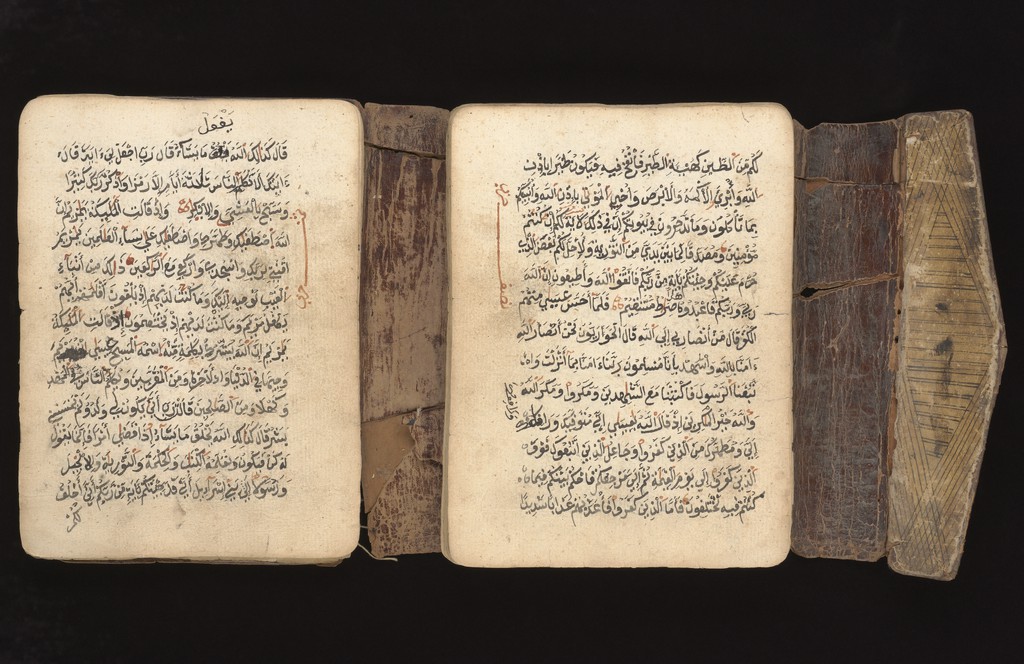 يفعل
قال كذلك الله يفعل ما يشاء قال رب اجعل لي ءاية قال
ءايتك ألا تكلم الناس ثلثة أيام إلا رمزا واذكر ربك كثيرا
وسبح بالعشي والابكر وإذ قالت الملئكة يمريم إن
الله اصطفيك وطهرك واصطفيك علي نساء العلمين يمريم
اقنتي لربك واسجدي واركعي مع الركعين ذلك من أنباء
الغيب نوحيه إليك وما كنت لديهم إذ يلقون أقلمهم أيهم
يكفل مريم وما كنت لديهم إذ يختصمون إذ قالت الملئكة
يمريم إن الله يبشرك بكلمة منه اسمه المسيح عيسي
وجيها في الدنيا والاخرة ومن المقربين ويكلم الناس في المهد
وكهلا ومن الصلحين قالت رب أني يكون لي ولد ولم يمسسني
بشر قال كذلك الله يخلق ما يشاء إذا قضي أمرا فإنما يقول
له كن فيكون ويعلمه الكتب والحكمة والتورية والانجيل
ورسولا إلي بني إسراءيل أني قد جئتكم بئاية من ربكم أني أخلق
لكم
كم من الطين كهيئة الطير فأنفخ فيه فيكون طيرا بإذن
الله وأبرئ الاكمه والابرص وأحي الموتي بإذن الله وأنبئكم
بما تأكلون وما تدخرون في بيوتكم إن في ذلك لاية لكم إن كنتم
مؤمنين ومصدقا لما بين يدي من التورية ولاحل لكم بعض الذي
حرم عليكم وجئتكم بئاية من ربكم فاتقوا الله وأطيعون إن الله
ربي وربكم فاعبدوه هذا صراط مستقيم فلما أحس عيسي منهم
الكفر قال من أنصاري إلي الله قال الحواريون نحن أنصار الله
ءامنا بالله واشهد بأنا مسلمون ربنا ءامنا بما أنزلت وا
تبعنا الرسول فاكتبنا مع الشهدين ومكروا ومكر الله
والله خير المكرين إذ قال الله يعيسي إني متوفيك ورافعك
إلي ومطهرك من الذين كفروا وجاعل الذين اتبعوك فوق
الذين كفروا إلي يوم القيمة ثم إلي مرجعكم فأحكم بينكم فيما
كنتم فيه تختلفون فأما الذين كفروا فأعذبهم عذابا شديدا